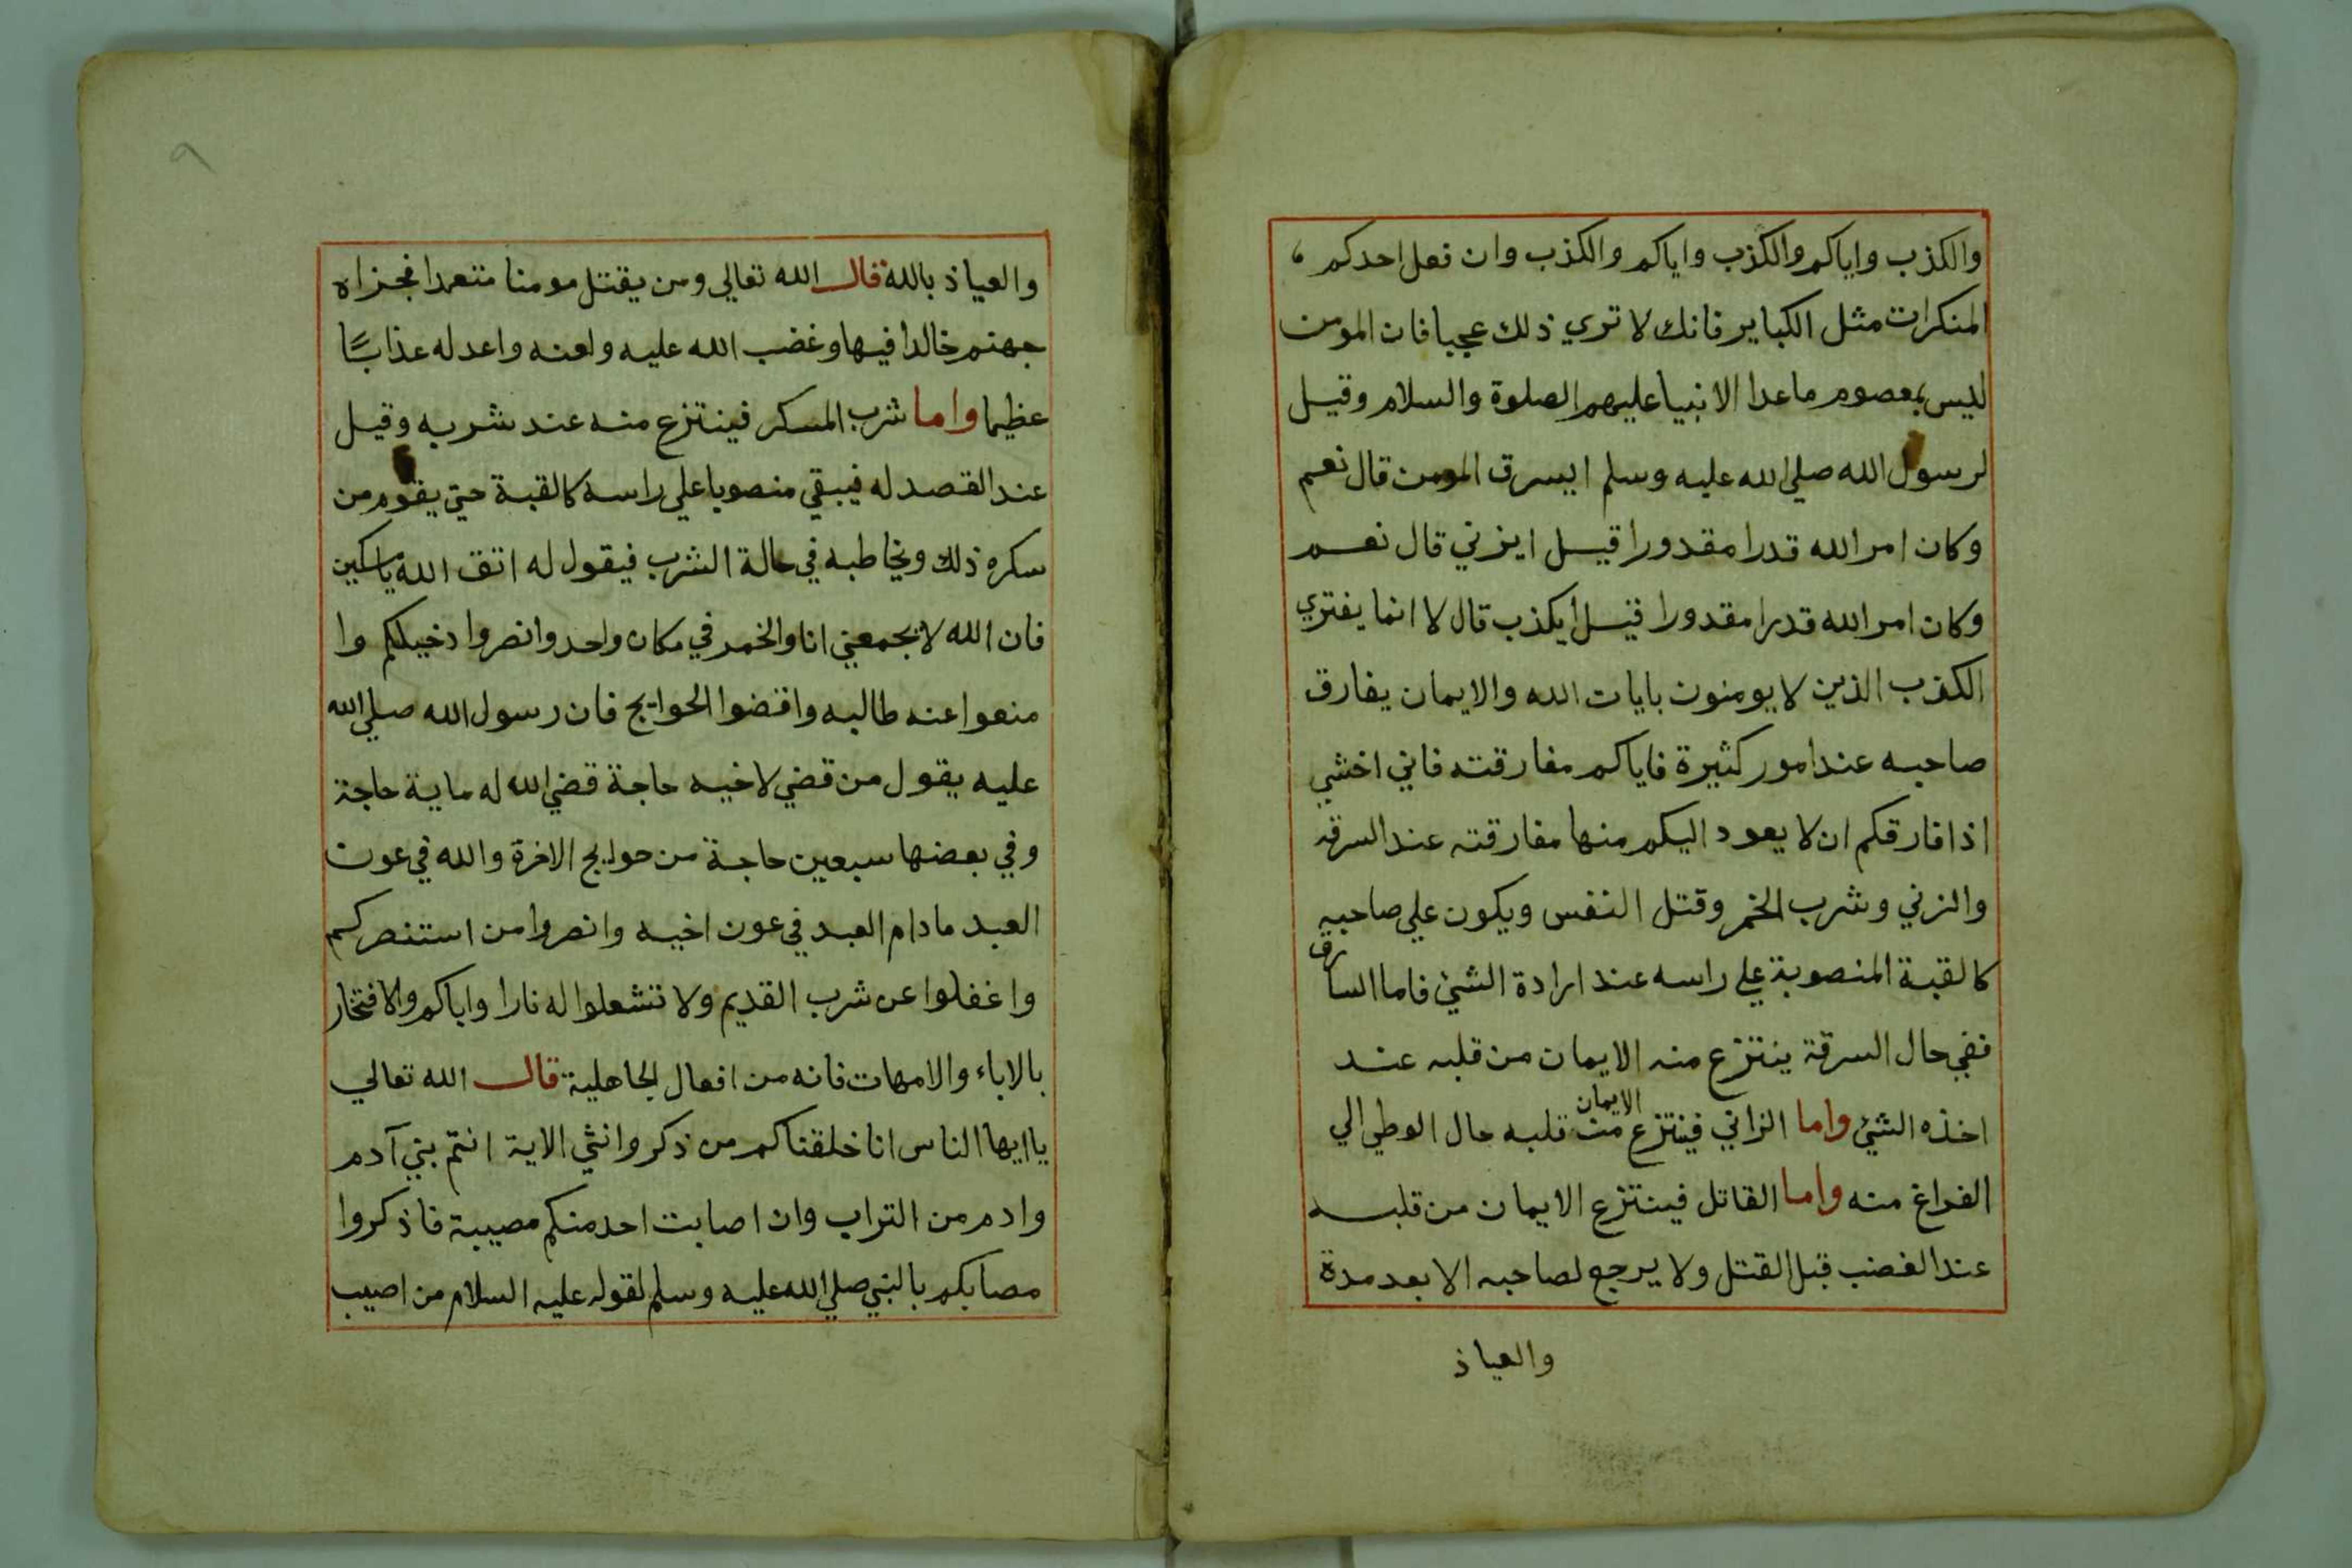 والكذب واياكم والكذب واياكم والكذب وان فعل احدكم
المنكرات مثل الكباير فانك لا تري ذلك عجبا فان المومن
ليس بمعصوم ماعدا الانبيا عليهم الصلوة والسلام وقيل
لرسول الله صلي الله عليه وسلم ايسرق المومن قال نعم
وكان امر الله قدرا مقدورا قيل ايزني قال نعم
وكان امر الله قدرا مقدورا قيل ايكذب قال لا انما يفتري
الكذب الذين لا يومنون بايات الله والايمان يفارق
صاحبه عند امور كثيرة فاياكم مفارقته فاني اخشي
اذا فارقكم ان لا يعود اليكم منها مفارقته عند السرقه
والزني وشرب الخمر وقتل النفس ويكون علي صاحبه
كالقبة المنصوبة علي راسه عند ارادة الشئ فاما السارق
ففي حال السرقة ينتزع منه الايمان من قلبه عند
اخذه الشئ واما الزاني فينتزع الايمان من قلبه حال الوطي الي
الفراغ منه واما القاتل فينتزع الايمان من قلبه
عند الغضب قبل القتل ولا يرجع لصاحبه الا بعد مدة
والعياذ
٩
والعياذ بالله قال الله تعالي ومن يقتل مومنا متعمدا فجزاه
جهنم خالدا فيها وغضب الله عليه ولعنه واعد له عذابًا
عظيما واما شرب المسكر فينتزع منه عند شربه وقيل
عند القصد له فيبقي منصوبا علي راسه كالقبة حتي يقوم من
سكره ذلك ويخاطبه في حالة الشرب فيقول له اتق الله يا مسكين
فان الله لا يجمعني انا والخمر في مكان واحد وانصروا دخيلكم وا
منعوا عنه طالبه واقضوا الحوايج فان رسول الله صلي الله
عليه يقول من قضي لاخيه حاجة قضي الله له ماية حاجة
وفي بعضها سبعين حاجة من حوايج الاخرة والله في عون
العبد مادام العبد في عون اخيه وانصروا من استنصركم
واغفلوا عن شرب القديم ولا تشعلوا له نارا واياكم والافتخار
بالاباء والامهات فانه من افعال الجاهلية قال الله تعالي
يا ايها الناس انا خلقناكم من ذكر وانثي الاية انتم بني آدم
وادم من التراب وان اصابت احد منكم مصيبة فاذكروا
مصابكم بالنبي صلي الله عليه وسلم لقوله عليه السلام من اصيب